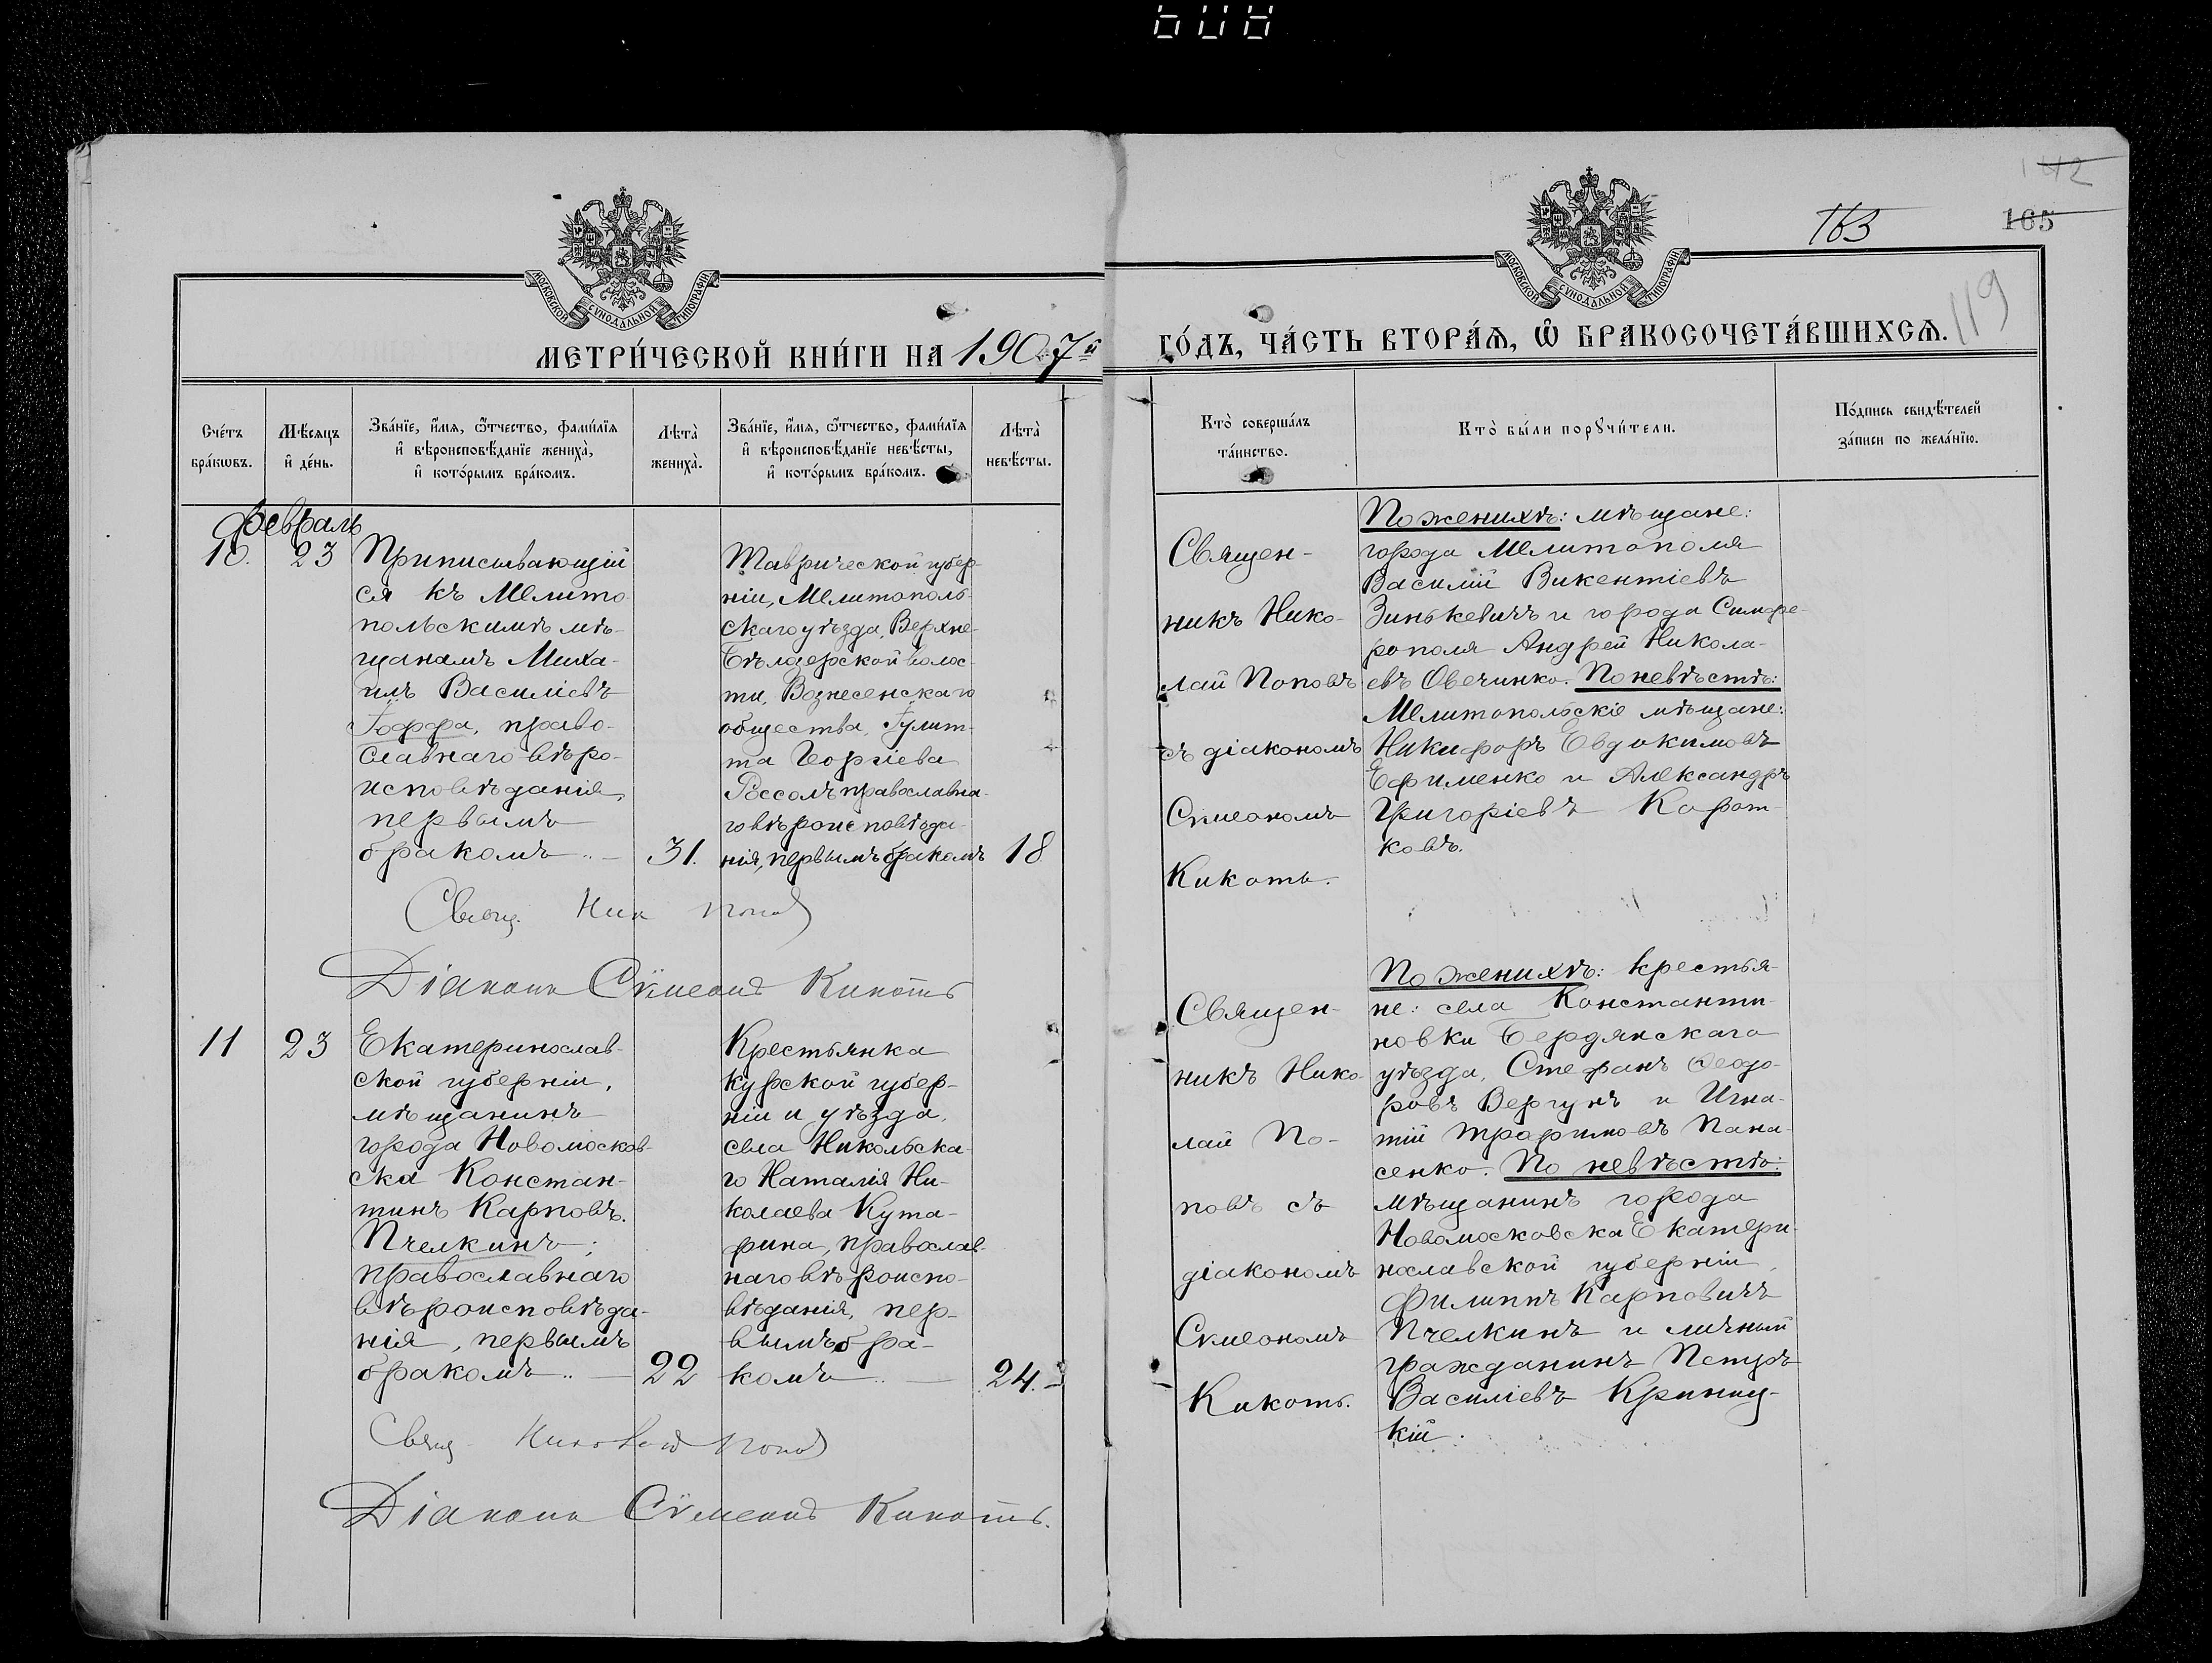 608
142
163
165
119
МОСКОВСКОЙ СѴНОДАЛЬНОЙ ТИПОГРАФІИ
МОСКОВСКОЙ СѴНОДАЛЬНОЙ ТИПОГРАФІИ
МЕТРИ́ЧЕСКОЙ КНИ́ГИ НА 1907й
ГО́ДЪ, ЧА́СТЬ ВТОРА́Ѧ, Ѽ БРАКОСОЧЕТА́ВШИХСѦ.
Сче́тъ
бра́кѡвъ.
Мѣ́сѧцъ
и҆ де́нь.
Зва́нїе, и҆́мѧ, ѻ҆́тчество, фами́лїѧ
и҆ вѣроисповѣ́данїе жениха̀,
и҆ кото́рымъ бра́комъ.
Лѣта̀
жениха̀.
Зва́нїе, и҆́мѧ, ѻ҆́тчество, фами́лїѧ
и҆ вѣроисповѣ́данїе невѣ́сты,
и҆ кото́рымъ бра́комъ.
Лѣта̀
невѣ́сты.
Кто̀ соверша́лъ
та́инство.
Кто̀ бы́ли порꙋчи́тели.
По́дпись свидѣ́телей
за́писи по жела́нїю.
Февраль
10. 23
Приписывающій
ся къ Мелито
польскимъ мѣ-
щанамъ Миха-
илъ Василіевъ
Гоффа, право-
славнаго вѣро-
исповѣданія,
первымъ
бракомъ .. — 31.
Таврической губер-
ніи, Мелитополь-
скаго уѣзда, Верхне-
Бѣлозерской волос-
ти, Вознесенскаго
общества, Гулит-
та Георгіева
Россолъ православна-
го вѣроисповѣда-
нія, первымъ бракомъ 18
Священ-
никъ Нико-
лай Поповъ
съ діакономъ
Сѵмеономъ
Кикоть.
По женихѣ: мѣщане:
города Мелитополя
Василій Викентіевъ
Зинькевичъ и города Симфе-
рополя Андрей Никола-
евъ Овечинко. По невѣстѣ:
Мелитопольскіе мѣщане:
Никифоръ Евдокимовъ
Ефименко и Александръ
Григоріевъ Корот-
ковъ.
Свящ. Ник Попов
Діаконъ Сѵмеонъ Кикоть
11 23
Екатеринослав-
ской губерніи,
мѣщанинъ
города Новомосков-
ска Констан-
тинъ Карповъ
Пчелкинъ;
православнаго
вѣроисповѣда-
нія, первымъ
бракомъ .. — 22
Крестьянка
Курской губер-
ніи и уѣзда,
села Никольска-
го Наталія Ни-
колаева Кута-
рина, православ-
наго вѣроиспо-
вѣданія, пер-
вымъ бра-
комъ .. — 24.
Священ-
никъ Нико-
лай По-
повъ съ
діакономъ
Сѵмеономъ
Кикоть.
По женихѣ: крестья-
не: села Константи-
новки Бердянскаго
уѣзда, Стефанъ Ѳеодо-
ровъ Вергунъ и Игна-
тій Трофимовъ Пана-
сенко. По невѣстѣ:
мѣщанинъ города
Новомосковска Екатери-
нославской губерніи,
Филиппъ Карповичъ
Пчелкинъ и личный
гражданинъ Петръ
Василіевъ Криниц-
кій.
Свящ. Николай Попов
Діаконъ Сѵмеонъ Кикоть.